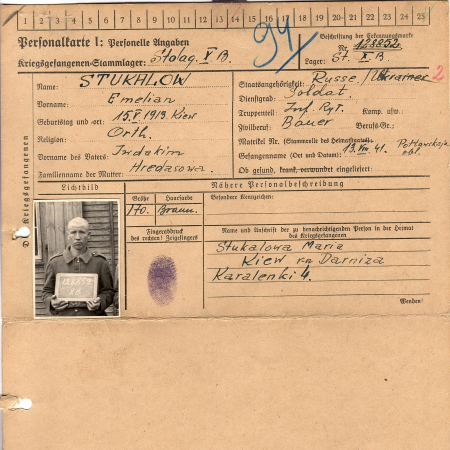 1 2 3 4 5 6 7 8 9 10 11 12 13 14 15 16 17 18 19 20 21 22 23 24 25
Personalkarte I: Personelle Angaben
Kriegsgefangenen-Stammlager: Stalag V B.
94
Beschriftung der Erkennungsmarke
Nr. 128852
Lager: St. X B.
Des Kriegsgefangenen
Name: STUKHLOW
Vorname: Emelian
Geburtstag und -ort: 15.V 1919. Kiew
Religion: Orth.
Vorname des Vaters: Indakim
Familienname der Mutter: Hredasowa.
Staatsangehörigkeit: Russe/Ukrainer 2
Dienstgrad: Soldat.
Truppenteil: Inf. Rgt. Komp. usw.:
Zivilberuf: Bauer Berufs-Gr.:
Matrikel Nr. (Stammrolle des Heimatstaates):
Gefangennahme (Ort und Datum): 13.VIII 41. Poltawskaja obl.
Ob gesund, krank, verwundet eingeliefert:
Lichtbild
Nähere Personalbeschreibung
Größe
170.
Haarfarbe
Braun.
Besondere Kennzeichen:
Fingerabdruck
des rechten! Zeigefingers
Name und Anschrift der zu benachrichtigenden Person in der Heimat
des Kriegsgefangenen
Stukalowa Maria
Kiew rn Darniza
Karalenki 4.
Wenden!
128852
XB